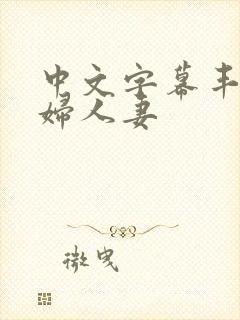 中文字幕丰
婦人妻
微曳